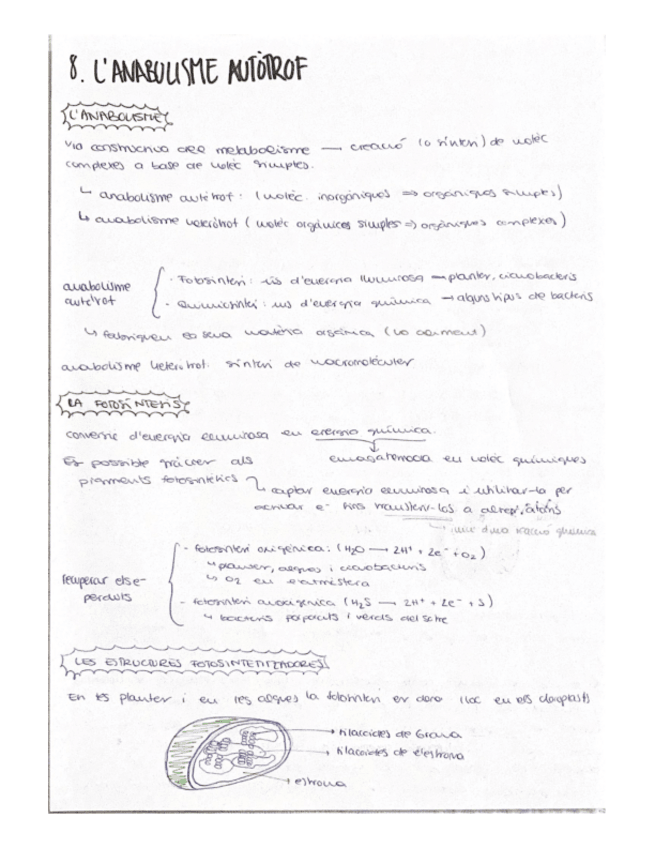 8. L'ANABOLISME AUTÒTROF
L'ANABOLISME
Via constructiva del metabolisme — creació (o síntesi) de molèc
complexes a base de molèc simples.
↳ anabolisme autòtrof: (molèc. inorgàniques ⇒ orgàniques simples)
↳ anabolisme heteròtrof (molèc orgàniques simples ⇒ orgàniques complexes)
anabolisme
autòtrof
· Fotosíntesi: ús d'energia lluminosa → plantes, cianobacteris
· Quimiosíntesi: ús d'energia química → alguns tipus de bacteris
↳ fabriquen es seva matèria orgànica (no aliment)
anabolisme heteròtrof: síntesi de macromolècules
LA FOTOSÍNTESIS
conversió d'energia lluminosa en energia química.
emmagatzemada en molèc químiques
És possible gràcies als
pigments fotosintètics
captar energia lluminosa i utilitzar-la per
activar e⁻ fins transferir-los a altres àtoms
reacció química
recuperar els e⁻
perduts
- fotosíntesi oxigènica: (H₂O → 2H⁺ + 2e⁻ + O₂)
↳ plantes, algues i cianobacteris
↳ O₂ en l'atmosfera
- fotosíntesi anoxigènica (H₂S → 2H⁺ + 2e⁻ + S)
↳ bacteris porporats i verds del sofre
LES ESTRUCTURES FOTOSINTETITZADORES
En les plantes i en les algues la fotosíntesi es dona lloc en els cloroplasts
→ tilacoides de Grana
→ tilacoides de l'estroma
→ estroma